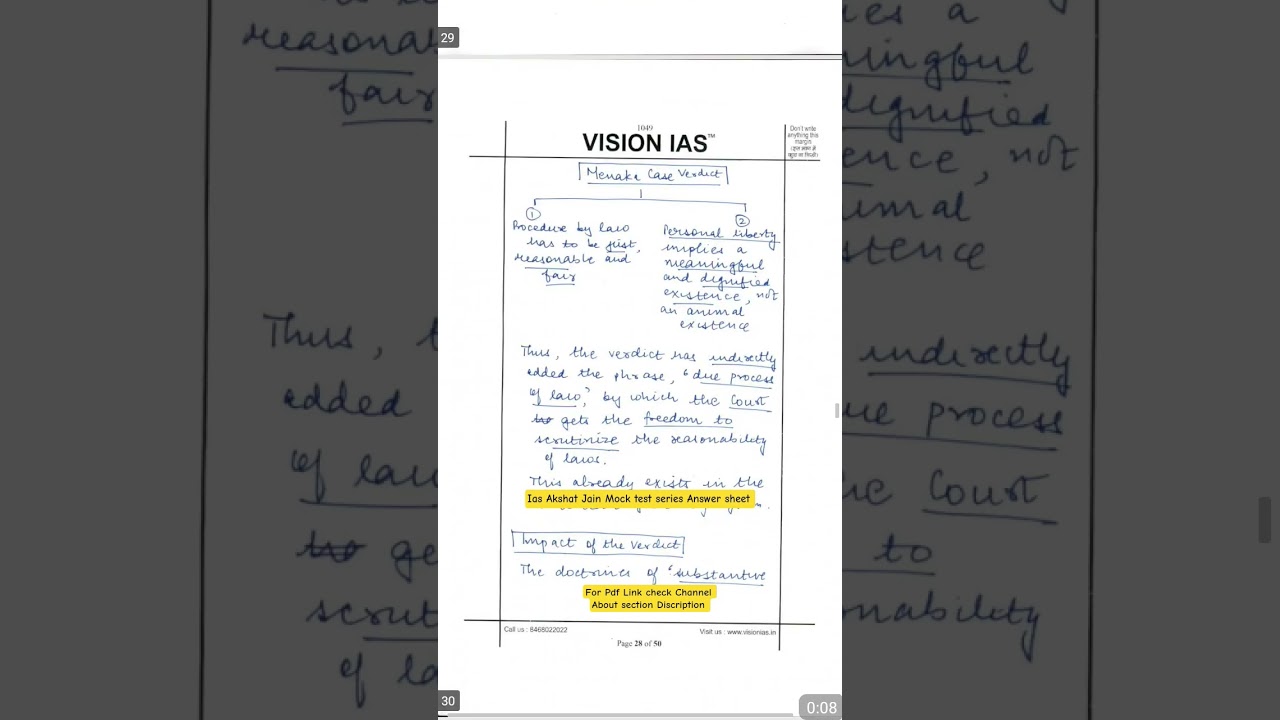 29
1049
VISION IAS™
Don't write
anything this
margin
Menaka Case Verdict
①
Procedure by law
has to be just,
reasonable and
fair
②
Personal liberty
implies a
meaningful
and dignified
existence, not
an animal
existence
Thus, the verdict has indirectly
added the phrase, "due process
of law," by which the Court
gets the freedom to
scrutinize the reasonability
of laws.
This already exists in the
Ias Akshat Jain Mock test series Answer sheet
Impact of the Verdict
The doctrines of "substantive
For Pdf Link check Channel
About section Discription
Call us : 8468022022
Visit us : www.visionias.in
Page 28 of 50
30
0:08